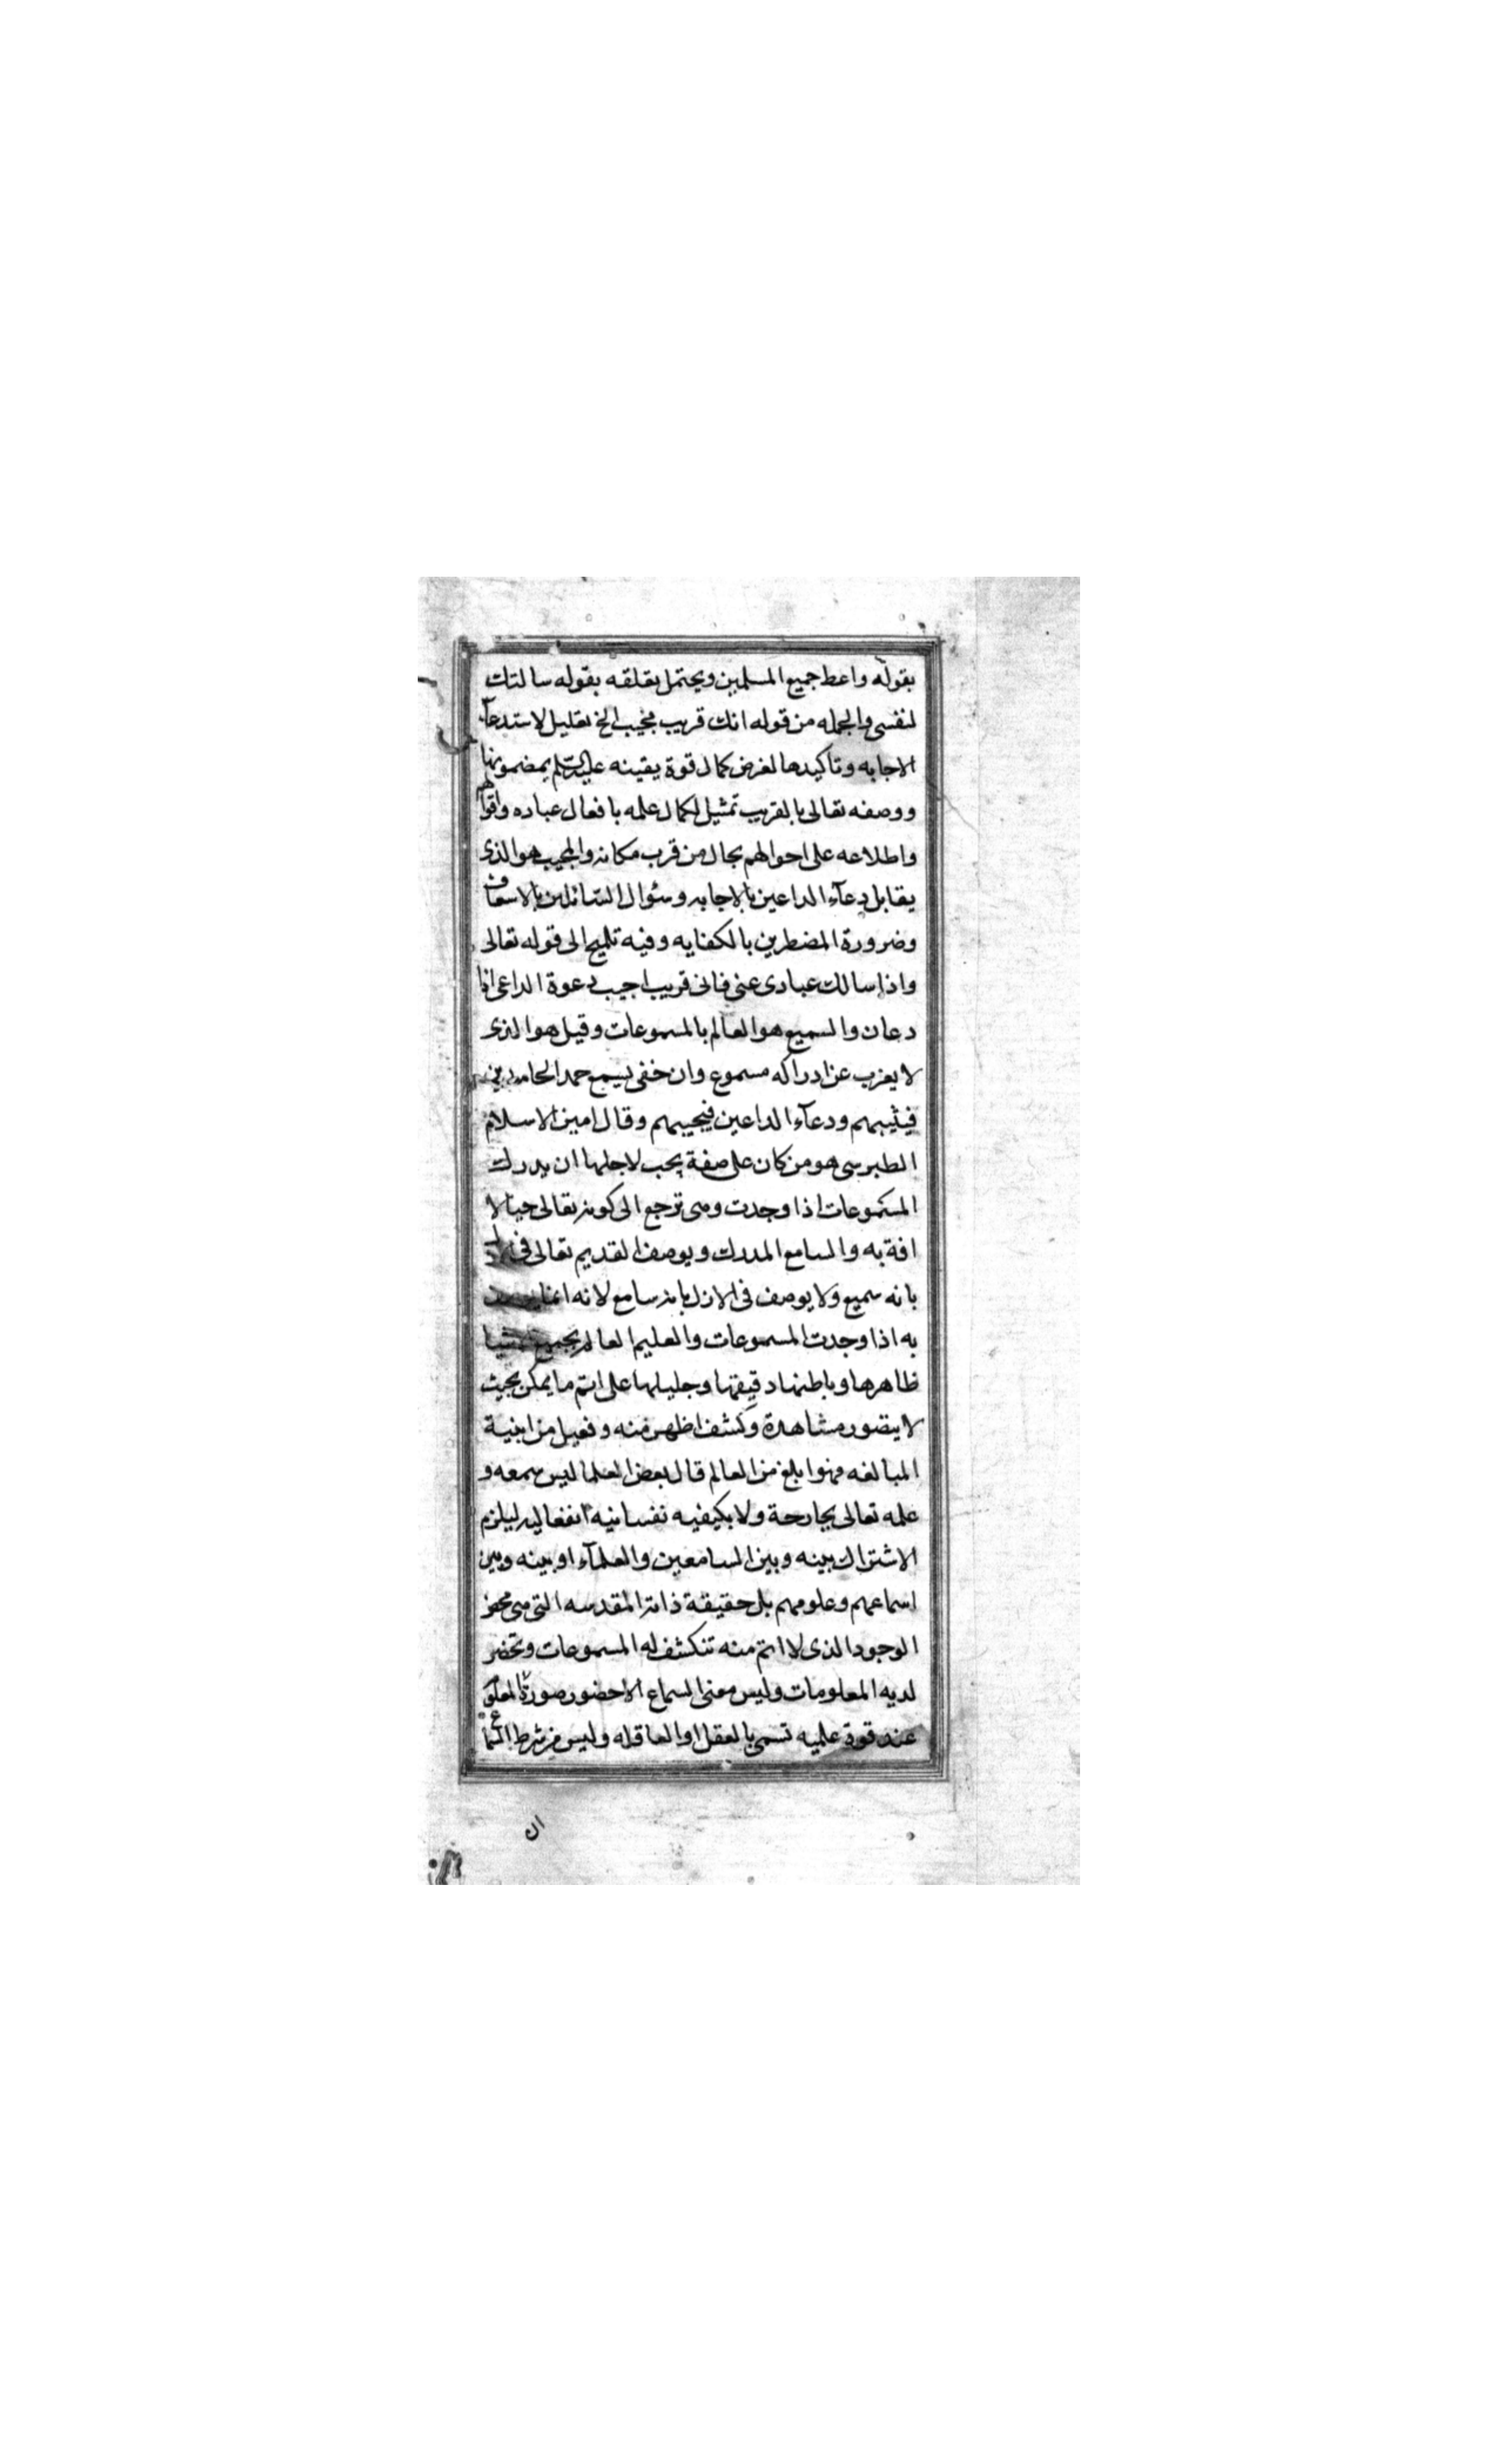 بقوله واعط جميع المسلمين ويحتمل تعلقه بقوله سالتك
لنفسى والجمله من قوله انك قريب مجيب الخ تعليل لاستدعآء
الاجابه وتاكيدها لغرض كمال قوة يقينه عليه السلم بمضمونها
ووصفه تعالى بالقريب تمثيل لكمال علمه بافعال عباده واقوالهم
واطلاعه على احوالهم بحال من قرب مكانه والمجيب هو الذى
يقابل دعآء الداعين بالاجابه وسئوال السائلين بالاسعاف
وضرورة المضطرين بالكفايه وفيه تلميح الى قوله تعالى
واذا سالك عبادى عنى فانى قريب اجيب دعوة الداعى اذا
دعان والسميع هو العالم بالمسموعات وقيل هو الذى
لا يعزب عن ادراكه مسموع وان خفى يسمع حمد الحامدين
فيثيبهم ودعآء الداعين فيجيبهم وقال امين الاسلام
الطبرسى هو من كان على صفة يجب لاجلها ان يدرك
المسموعات اذا وجدت وهى ترجع الى كونه تعالى حيا لا
افة به والسامع المدرك ويوصف القديم تعالى فى
بانه سميع ولا يوصف فى الازل بانه سامع لانه انما
به اذا وجدت المسموعات والعليم العالم بجميع الاشيا
ظاهرها وباطنها دقيقها وجليلها على اتم ما يمكن بحيث
لا يتصور مشاهدة وكشف اظهر منه وفعيل من ابنية
المبالغه فهوا بلغ من العالم قال بعض العلما ليس سمعه و
علمه تعالى بجارحة ولا بكيفيه نفسانيه انفعاليه ليلزم
الاشتراك بينه وبين السامعين والعلمآء او بينه وبين
اسماعهم وعلومهم بل حقيقة ذاته المقدسه التى هى محض
الوجود الذى لا اتم منه تنكشف له المسموعات وتحضر
لديه المعلومات وليس معنى السماع الا حضور صورة المعلوم
عند قوة علميه تسمى بالعقل او العاقله وليس من شرط السماع
ان